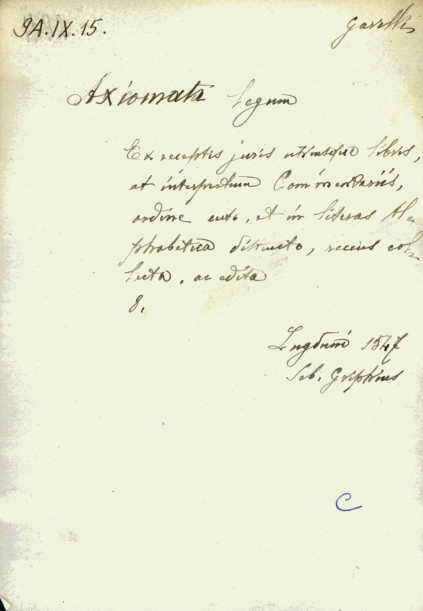 9A.IX.15. Garelli
Axiomata Legum
Ex receptis juris utriusque libris,
et interpretum Commentariis,
ordine certo, et in literas Al-
phabetica distincto, recens col-
lecta, ac edita
8.
Lugduni 1547
Seb. Griphius
C